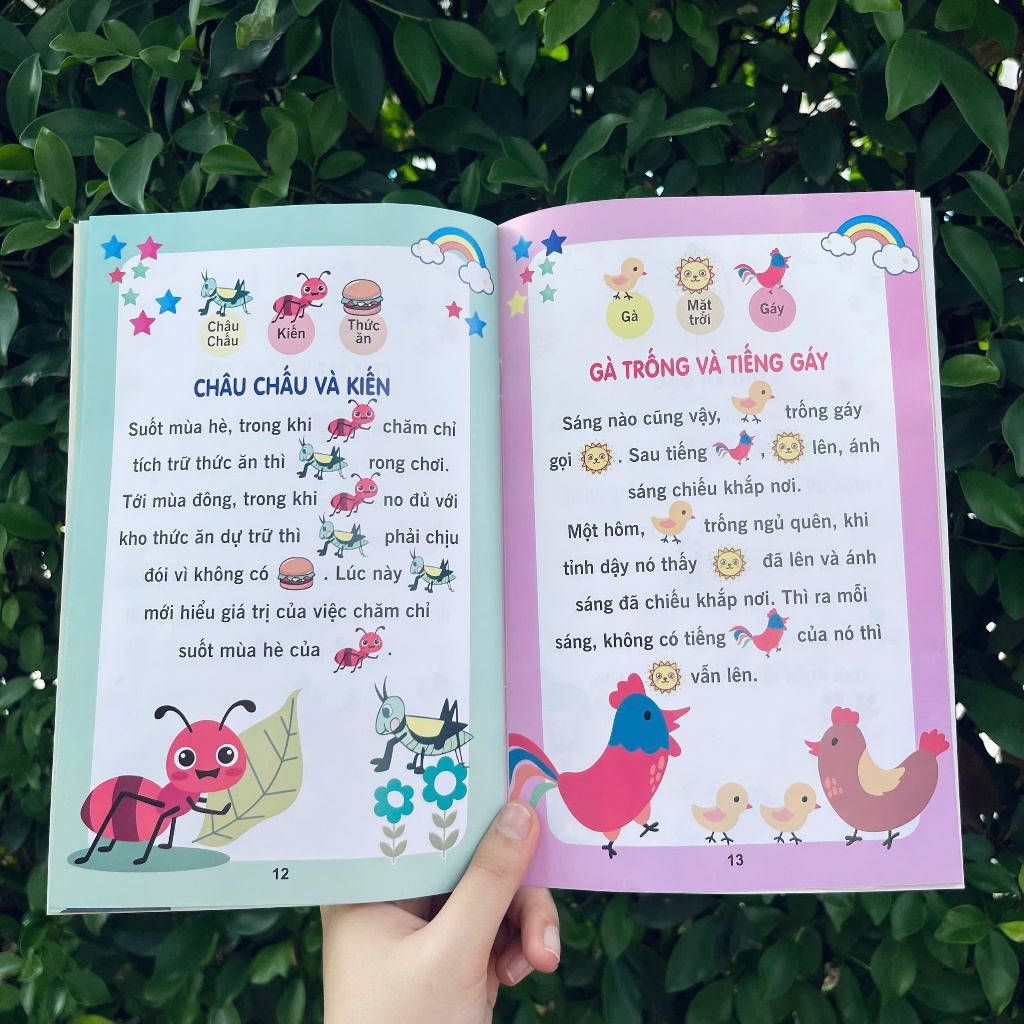 Châu
Chấu
Kiến
Thức
ăn
CHÂU CHẤU VÀ KIẾN
Suốt mùa hè, trong khi chăm chỉ
tích trữ thức ăn thì rong chơi.
Tới mùa đông, trong khi no đủ với
kho thức ăn dự trữ thì phải chịu
đói vì không có . Lúc này
mới hiểu giá trị của việc chăm chỉ
suốt mùa hè của .
12
Gà
Mặt
trời
Gáy
GÀ TRỐNG VÀ TIẾNG GÁY
Sáng nào cũng vậy, trống gáy
gọi . Sau tiếng , lên, ánh
sáng chiếu khắp nơi.
Một hôm, trống ngủ quên, khi
tỉnh dậy nó thấy đã lên và ánh
sáng đã chiếu khắp nơi. Thì ra mỗi
sáng, không có tiếng của nó thì
vẫn lên.
13